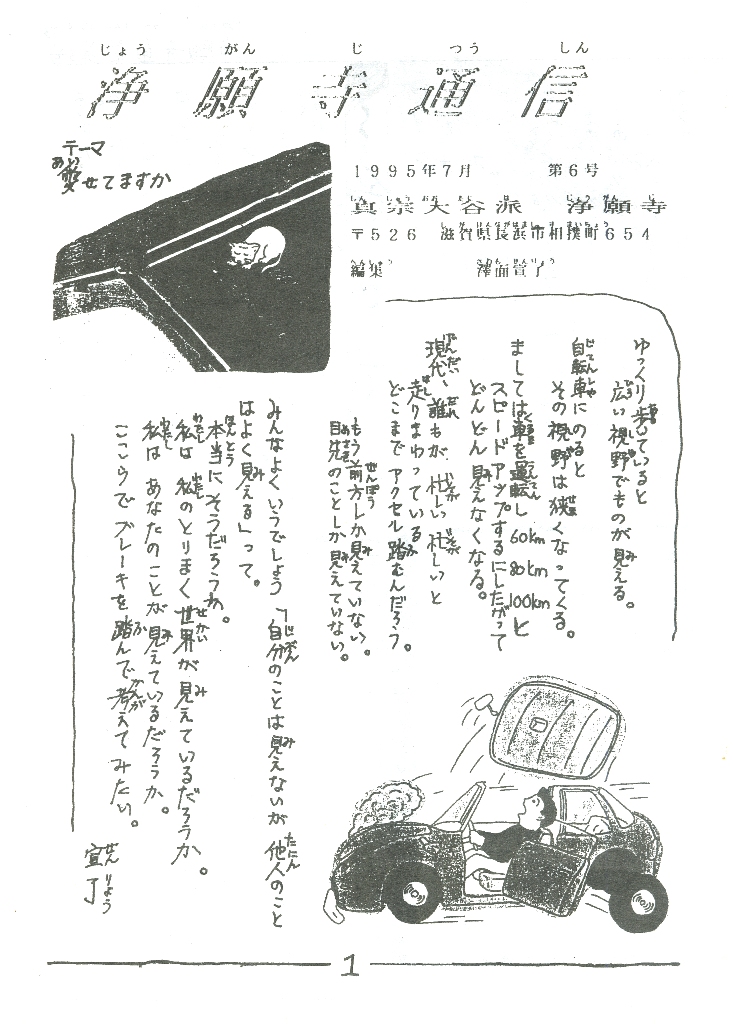 じょう がん じ つう しん
浄願寺通信
テーマ
愛せてますか
1995年7月 第6号
真宗大谷派 浄願寺
〒526 滋賀県長浜市相撲町654
編集 澤面宣了
ゆっくり歩いていると
広い視野でものが見える。
自転車にのると
その視野は狭くなってくる。
ましては車を運転し 60km 80km 100kmと
スピードアップするにしたがって
どんどん見えなくなる。
現代、誰もが、忙しい忙しいと
走りまわっている
どこまでアクセル踏むんだろう。
もう前方しか見えていない。
目先のことしか見えていない。
みんなよくいうでしょう「自分のことは見えないが他人のこと
はよく見える」って。
本当にそうだろうか。
私は私のとりまく世界が見えているだろうか。
私はあなたのことが見えているだろうか。
ここらでブレーキを踏んで考えてみたい。
宣了
1